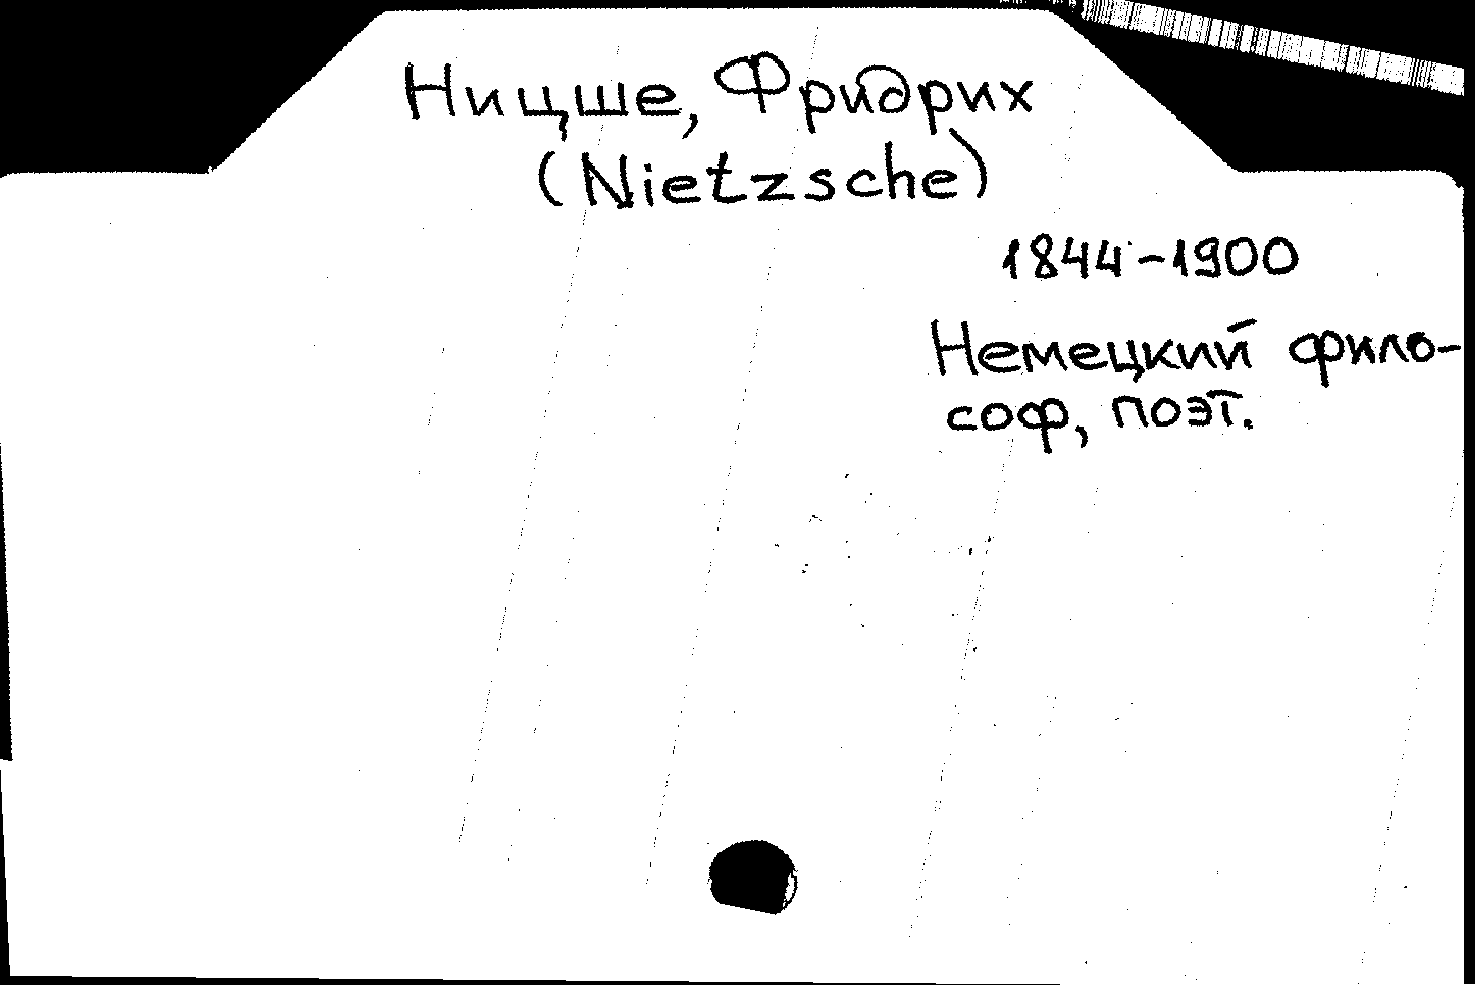 Ницше, Фридрих
(Nietzsche)
1844-1900
Немецкий фило-
соф, поэт.